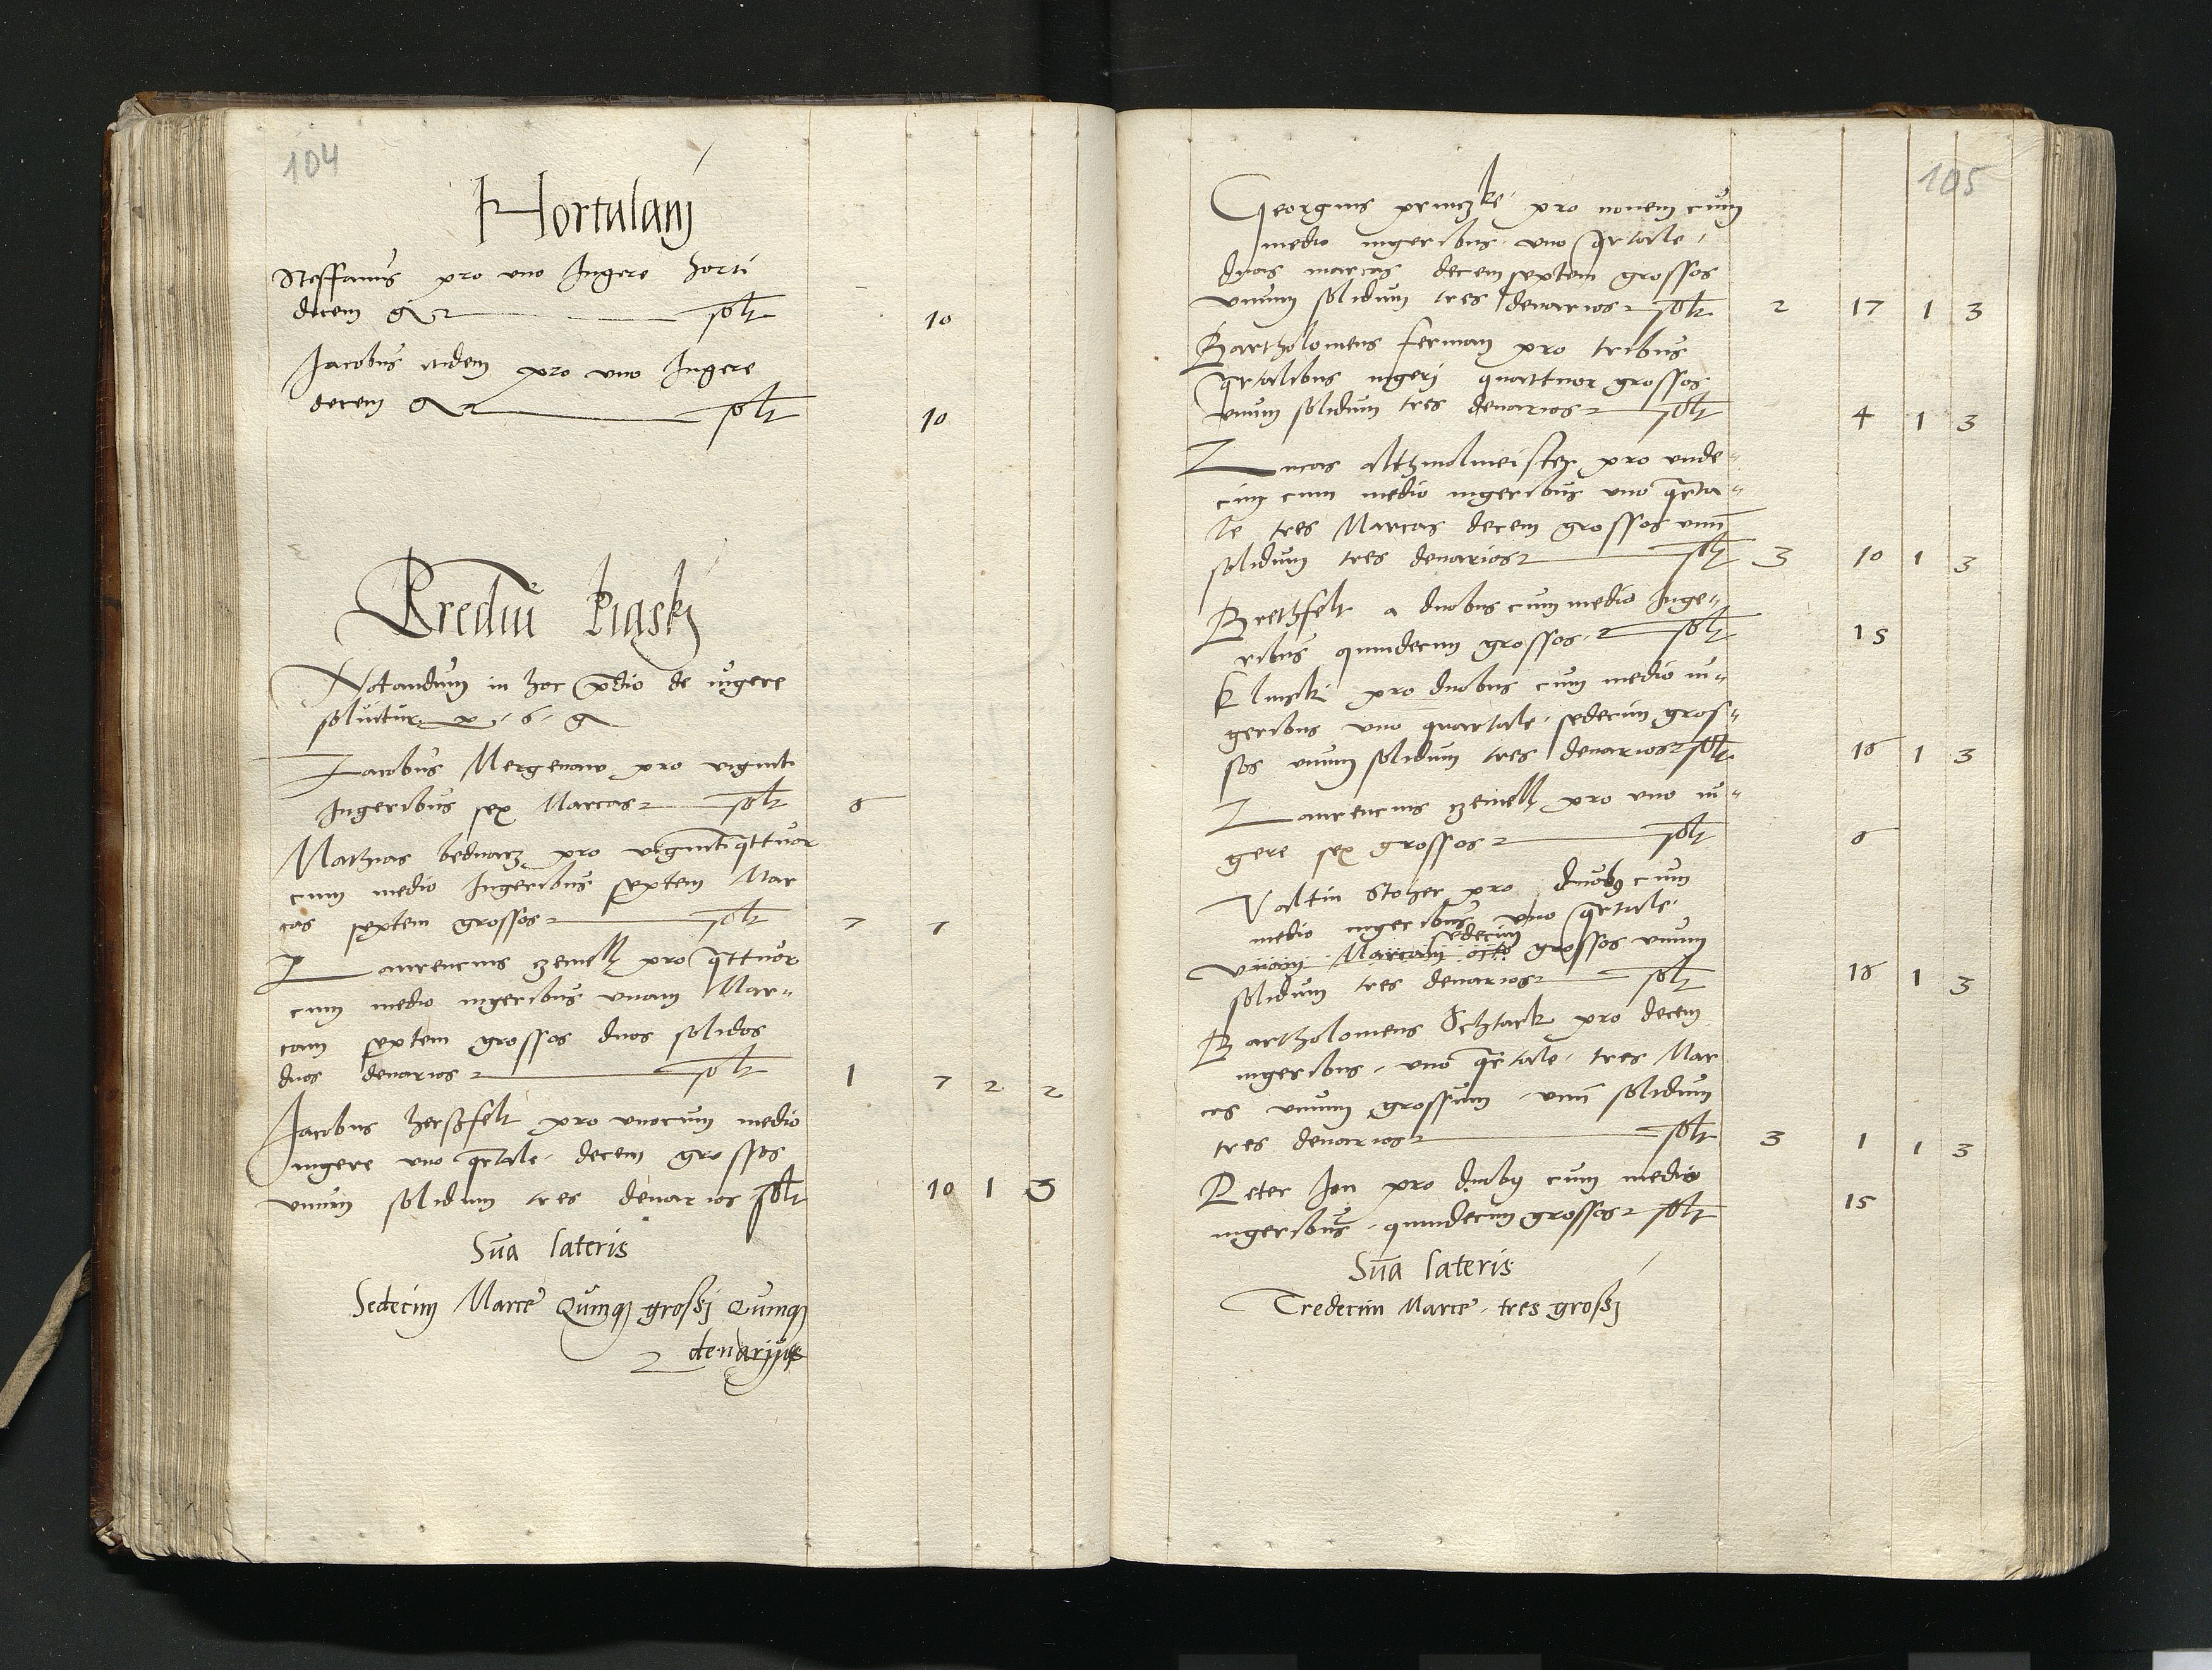 104
Hortulanj
Steffanus pro vno Iugere horti
decem g solt 10
Jacobus itidem pro vno Iugere
decem g solt 10
Prediu Piaskj
Notandum in hoc pdio de iugere
soluitur p 6 g
Jacobus Mergenaw pro viginti
Iugeribus sex Marcas solt 6
Mathias bednarz pro vigintiqttuor
cum medio Iugeribus septem Mar
cas septem grossos solt 7 7
Laurencius czemell pro qttuor
cum medio iugeribus vnam Mar-
cam septem grossos duos solidos
duos denarios solt 1 7 2 2
Jacobus herssfelt pro vnocum medio
iugere vno qrtale decem grossos
vnum solidum tres denarios solt 10 1 3
Sua lateris
Sedecim Marce Quinqz grossj Quinqz
denarij
105
Georgius princzke pro nouem cum
medio iugeribus vno qrtale
duas marcas decem septem grossos
vnum solidum tres denarios solt 2 17 1 3
Bartholomeus ferman pro tribus
qrtalibus iugerj quattuor grossos
vnum solidum tres denarios solt 4 1 3
Lucas altzmolmeister pro vnde-
cim cum medio iugeribus vno qrta-
le tres Marcas decem grossos vnu
solidum tres denarios solt 3 10 1 3
Brethfelt a duobus cum medio Iuge-
ribus quindecim grossos solt 15
Klinski pro duobus cum medio iu-
geribus vno quartale sedecim gros-
sos vnum solidum tres denarios solt 16 1 3
Laurencius czemell pro vno iu-
gere sex grossos solt 6
Valtin Stoher pro duobus cum
medio iugeribus vno qrtale
sedecim
vnam Marcam octo grossos vnum
solidum tres denarios solt 16 1 3
Bartholomeus Schtack pro decem
iugeribus vno qrtale tres Mar
cas vnum grossum vnu solidum
tres denarios solt 3 1 1 3
Peter Jan pro duobus cum medio
iugeribus quindecim grossos solt 15
Sua lateris
Tredecim Marce tres grossj